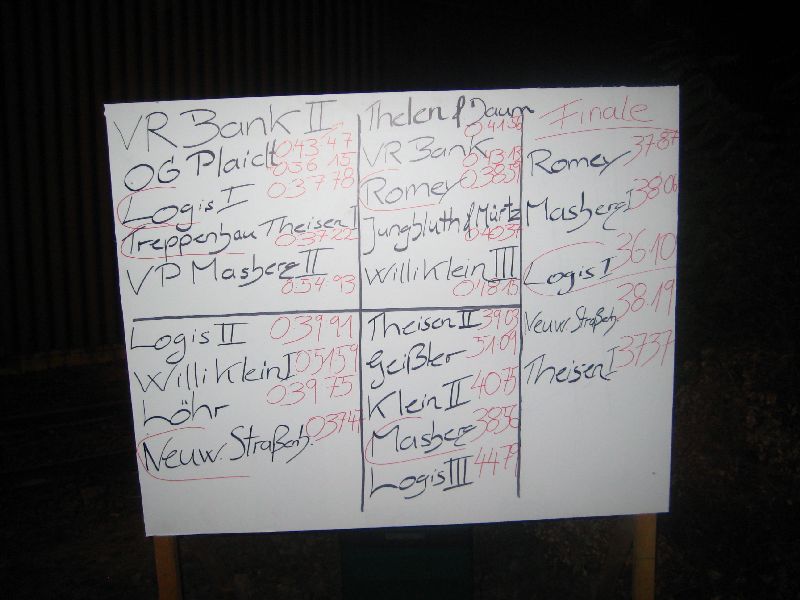 VR Bank II
0 43 47
OG Plaidt
0 36 15
Logis I
0 37 78
Treppenbau Theisen I
0 37 22
VP Masberg II
0 54 93
Thelen & Daum
0 41 56
VR Bank
0 43 13
Romey
0 38 59
Jungbluth & Mürtz
0 40 37
Willi Klein III
0 48 15
Logis II 0 39 91
Willi Klein I 0 51 59
Löhr 0 39 75
Neuw. Straßenb. 0 37 47
Theisen II 39 03
Geißler 51 09
Klein II 40 75
Masberg 38 56
Logis III 44 79
Finale
Romey 37 87
Masberg I 38 06
Logis I 36 10
Neuw. Straßenb. 38.19
Theisen I 37 37